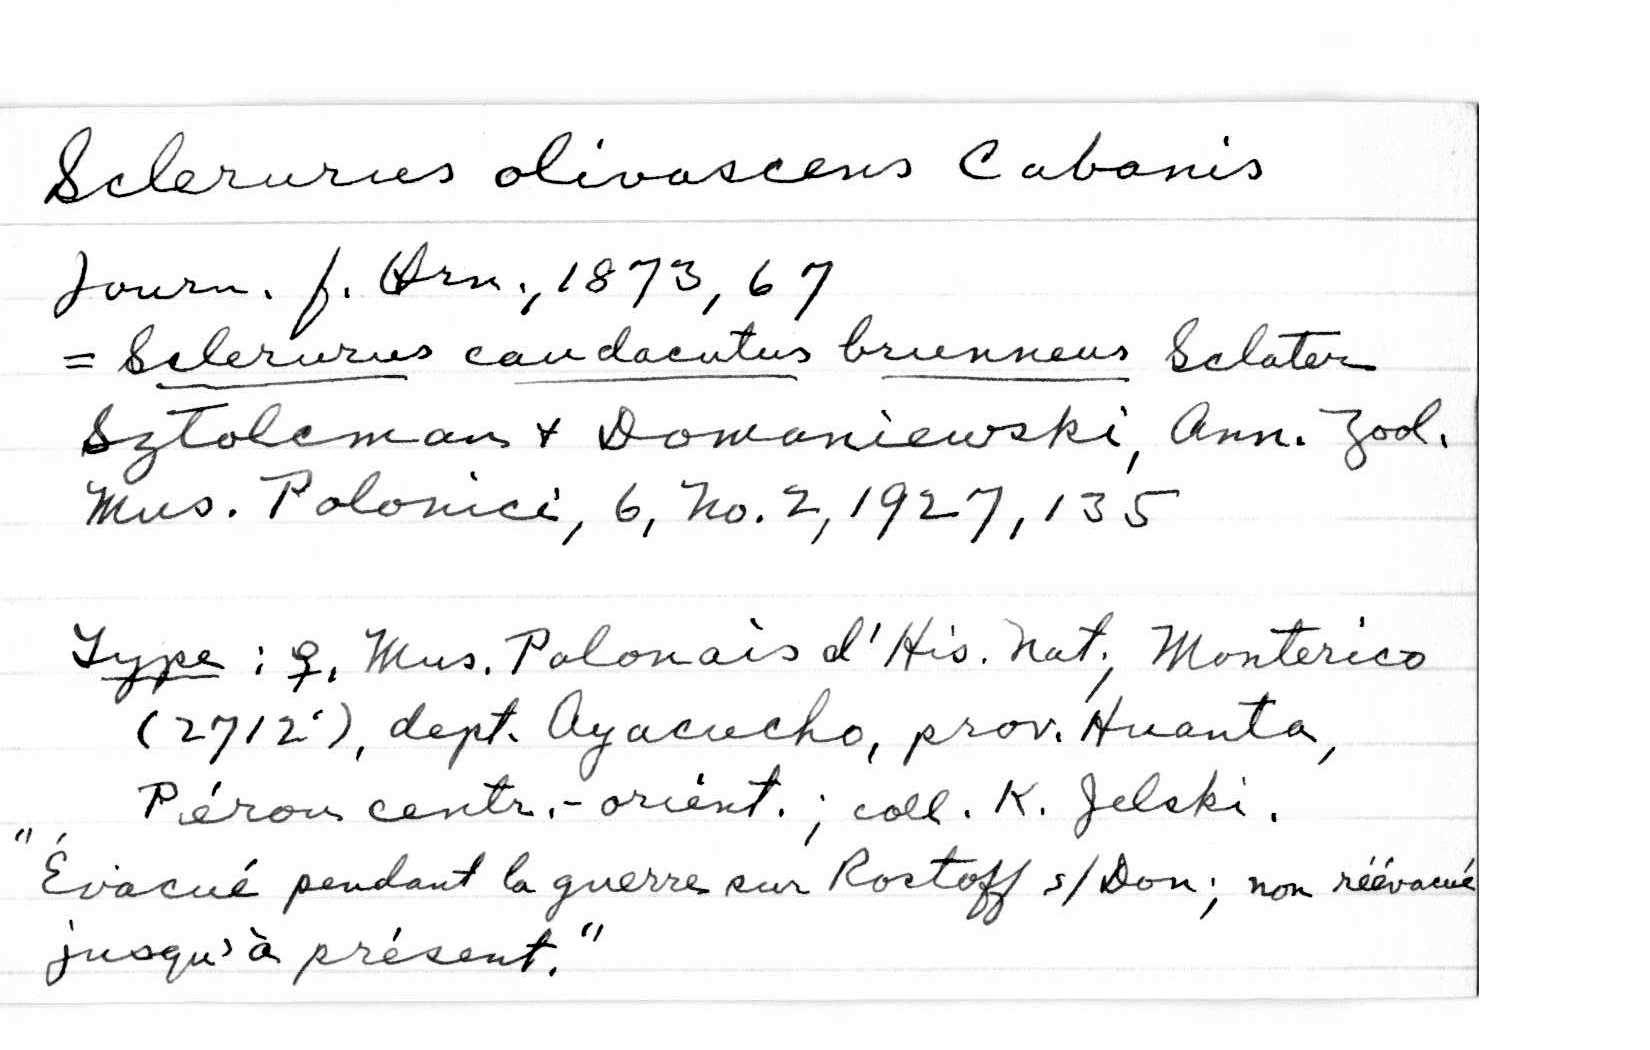 Sclerurus olivascens Cabanis
Journ. f. Orn., 1873, 67
= Sclerurus caudacutus brunneus Sclater
Sztolcman & Domaniewski, Ann. Zool.
Mus. Polonici, 6, No. 2, 1927, 135
Type: ♀, Mus. Polonais d'His. Nat.; Monterico
(2712'), dept. Ayacucho, prov. Huanta,
Pérou centr.-orient.; coll. K. Jelski.
"Évacué pendant la guerre sur Rostoff s/Don; non réévacué
jusqu'à présent."